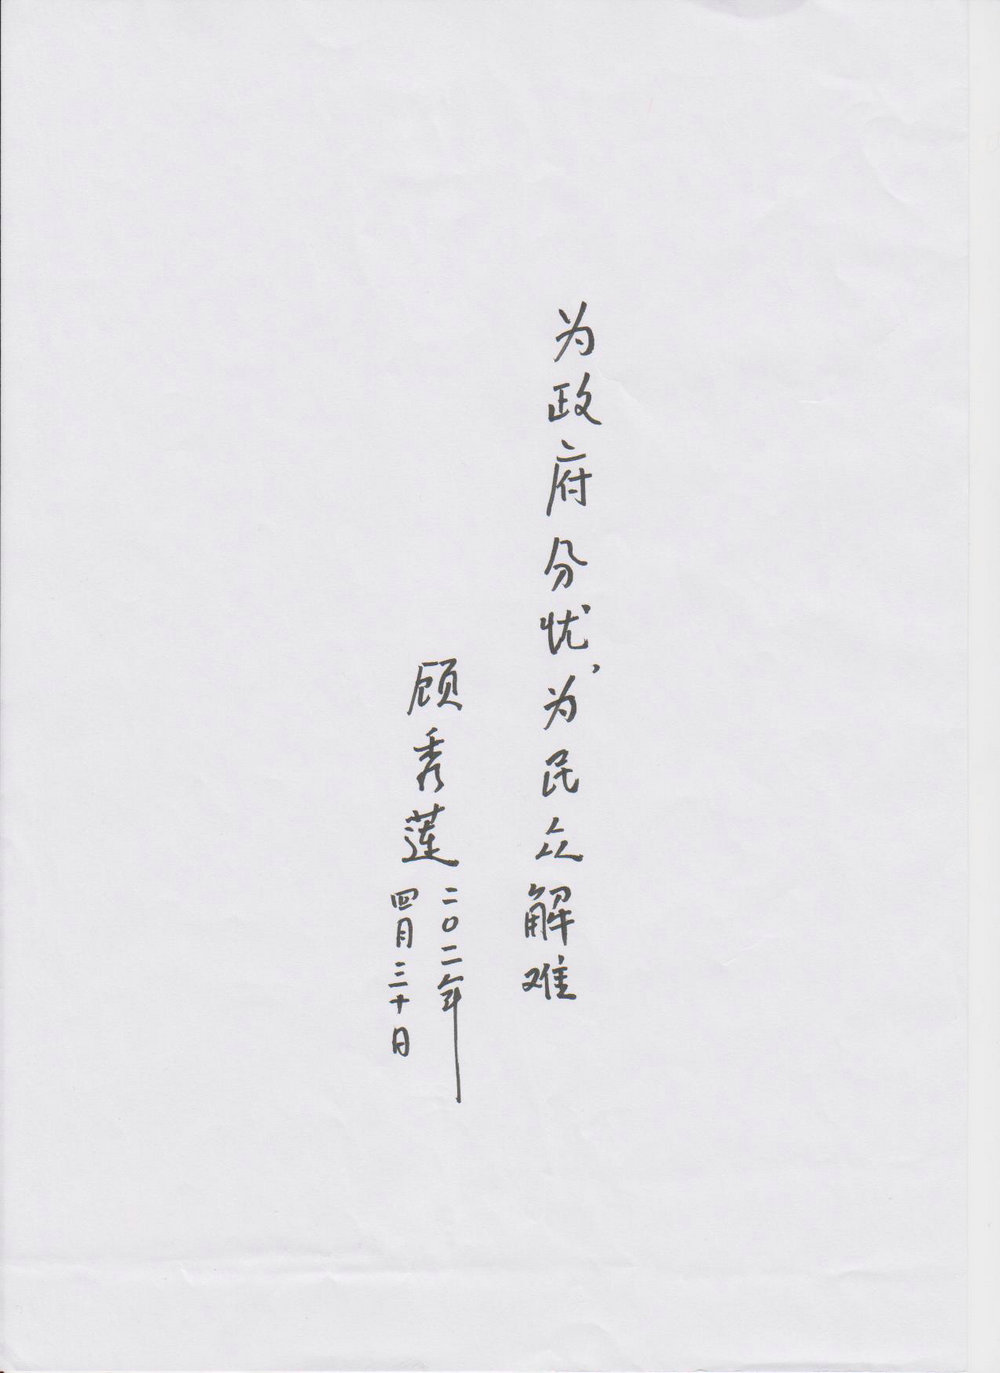 为政府分忧，为民众解难
顾秀莲
二〇一二年
四月三十日